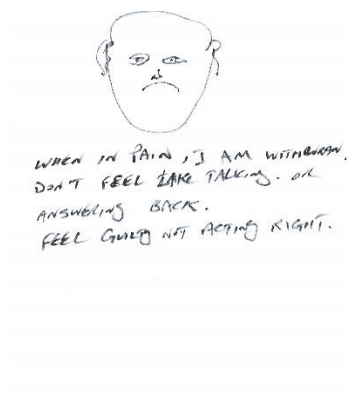 WHEN IN PAIN, I AM WITHDRAWN.
DON'T FEEL LIKE TALKING. OR
ANSWERING BACK.
FEEL GUILTY NOT ACTING RIGHT.